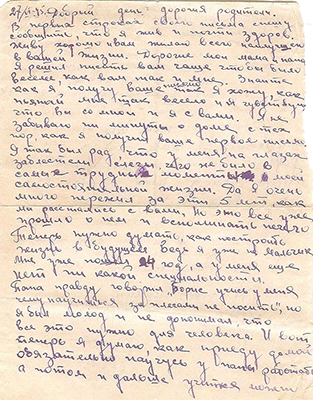 27/VI-45. Добрый день дорогие родители.
В первых строках своего письма спешу
сообщить, что я жив и почти здоров.
Живу хорошо и вам желаю всего наилучшего
в вашей жизни. Дорогие мои мама и папа
я решил писать вам чаще чтобы было
веселее как вам так и мне. Знаете
как я, получу ваше письмо я хожу, как
пьяный мне так весело и я чувствую
что вы со мной и я с вами. Я не
забываю ни минуты о доме с тех
пор, как я получил ваше первое письмо.
Я так был рад, что у меня на глазах
заблестели слезы, чего не было в
самые трудные моменты моей
самостоятельной жизни. Да я очень
много пережил за эти 5 лет, как
мы расстались с вами. Но это все уже
прошло о нем и вспоминать нечего
Теперь нужно думать, как построить
жизнь в будущем. Ведь я уже не мальчик
Мне уже пошел 24 год, а у меня еще
нет ни какой специальности.
Папа правду говорил Борис учись у меня
чему научишься за плечами не носить", но
я был молод и не допонимал, что
все это нужно для человека. И вот
теперь я думаю, как приеду домой
обязательно научусь у папы работать
а потом и дальше учиться можно